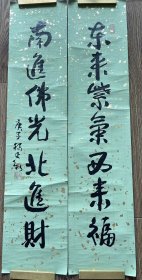 东来紫气西来福
南进佛光北进财
庚子